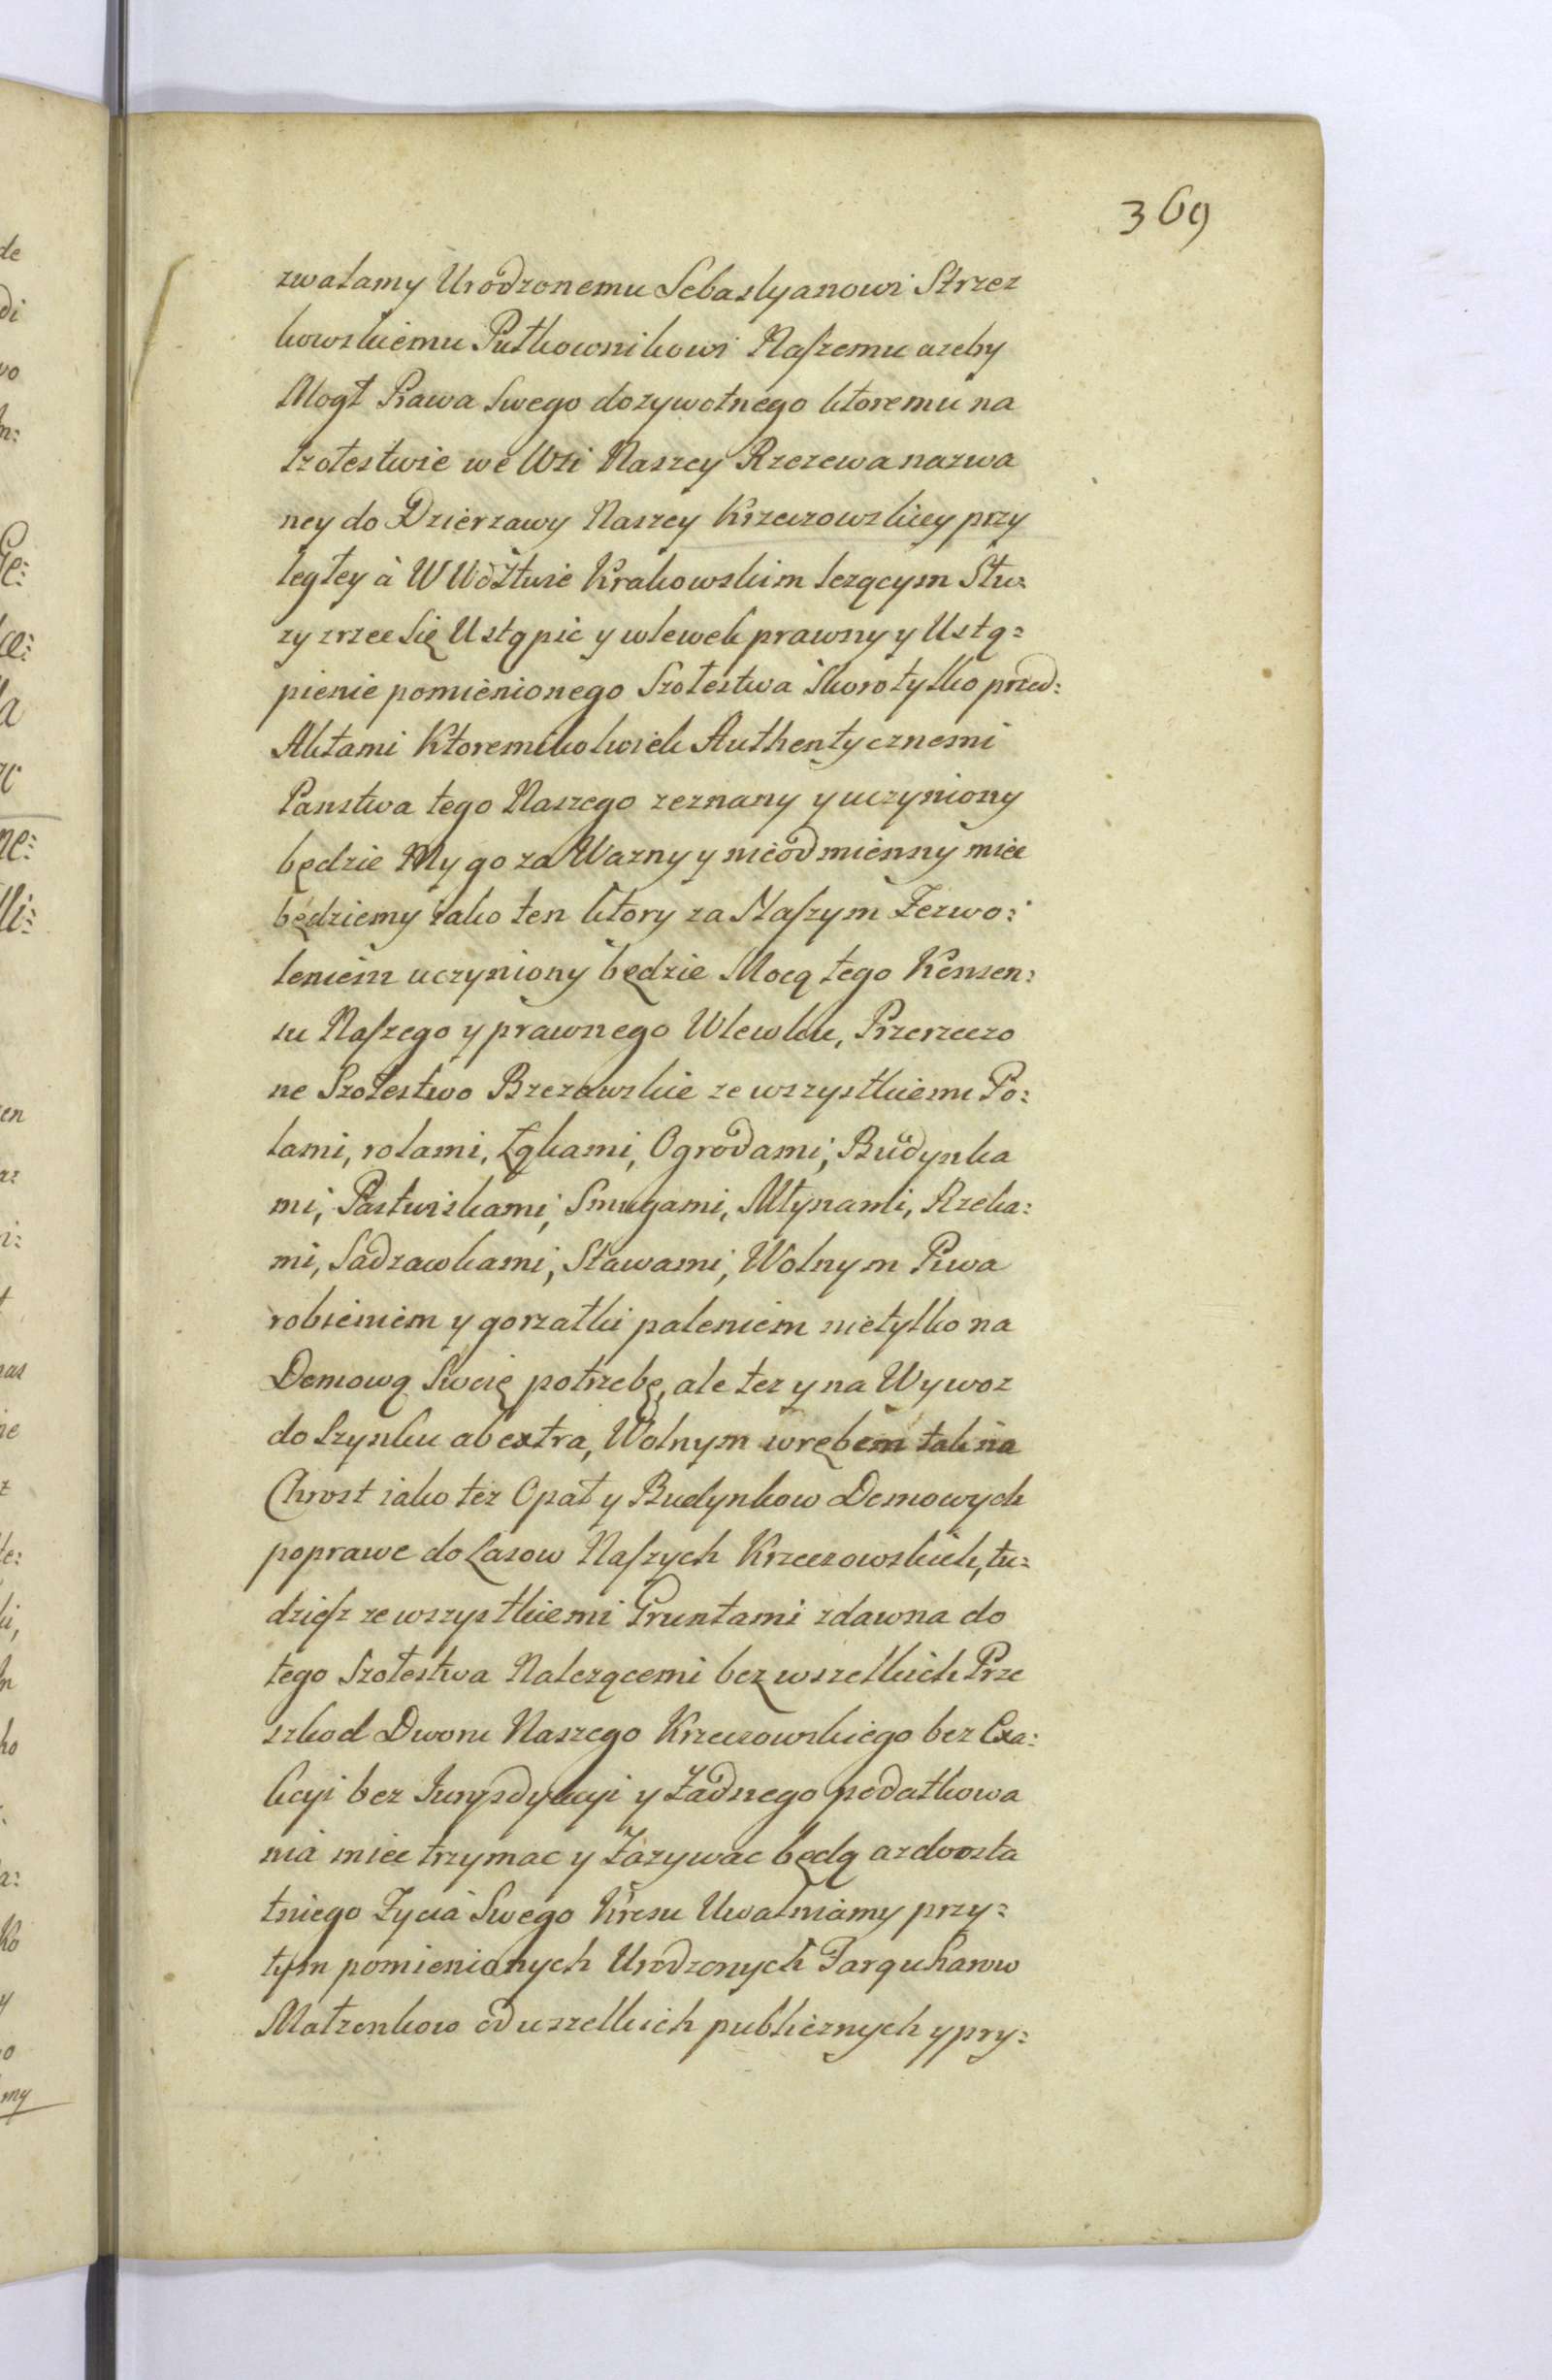 369
zwalamy Urodzonemu Sebastyanowi Strzez
kowskiemu Pułkownikowi Naszemu azeby
Mogł Prawa Swego dozywotnego ktoremu na
Szołestwie we Wsi Naszey Rzezewa nazwa
ney do Dzierzawy Naszey Krzeczowskiey przy
ległey à W Wdztwie Krakowskim lezącym Słu:
zy zrzec Się Ustąpic y wlewek prawny y Ustą:
pienie pomienionego Szołestwa Skoro tylko przed:
Aktami Ktoremikolwiek Authentycznemi
Panstwa tego Naszego zeznany y uczyniony
będzie My go za Wazny y nieodmienny miec
będziemy iako ten ktory za Naszym Zezwo:
leniem uczyniony będzie Mocą tego Konsen:
su Naszego y prawnego Wlewku, Przerzeczo
ne Szołestwo Brzezawskie ze wszystkiemi Po:
lami, rolami, Łąkami, Ogrodami, Budynka
mi, Pastwiskami, Smugami, Młynami, Rzeka:
mi, Sadzawkami, Stawami, Wolnym Piwa
robieniem y gorzałki paleniem nietylko na
Domową Swoię potrzebę, ale tez y na Wywoz
do Szynku ab extra, Wolnym wrębem tak na
Chrost iako tez Opał y Budynkow Domowych
poprawe do Lasow Naszych Krzeczowskich, tu:
dziesz ze wszystkiemi Gruntami zdawna do
tego Szołestwa Nalezącemi bez wszelkich Prze
szkod Dworu Naszego Krzeczowskiego bez Exa:
kcyi bez Jurysdykcyi y Zadnego podatkowa
nia miec trzymac y Zazywac będą az do osta
tniego Zycia Swego Kresu Uwalniamy przy:
tym pomienionych Urodzonych Farquharow
Małzonkow od wszelkich publicznych y pry: